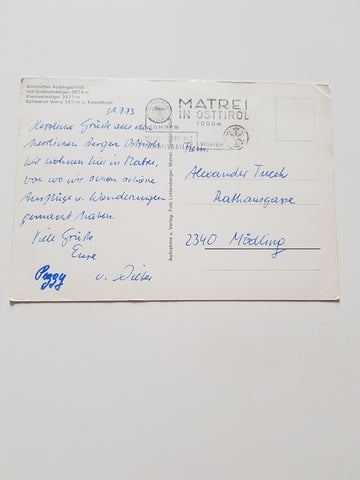 Almhütten Außergschlöß
mit Großvenediger 3674 m
Kleinvenediger 3477 m
Schwarze Wand 3511 m u. Kesselkopf
31.7.73
MATREI
IN OSTTIROL
1000 m
SOMMER
WINTER
Herzliche Grüße aus den
herrlichen Bergen Osttirols.
Wir wohnen hier in Matrei,
von wo wir schon schöne
Ausflüge u. Wanderungen
gemacht haben.
Viele Grüße
Eure
Peggy u. Dieter
Aufnahme u. Verlag: Foto Lottersberger, Matrei
Fam.
Alexander
Rathausgasse
2340 Mödling